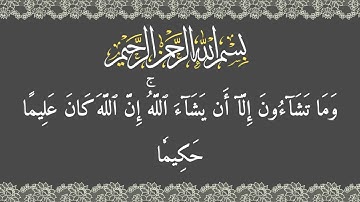 بسم الله الرحمن الرحيم
وَمَا تَشَآءُونَ إِلَّآ أَن يَشَآءَ ٱللَّهُ ۚ إِنَّ ٱللَّهَ كَانَ عَلِيمًا
حَكِيمًا